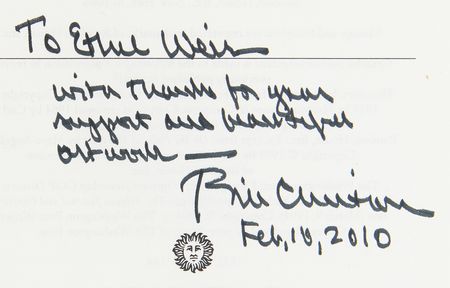 To Ethel Weir
with thanks for your
support and beautiful
artwork —
Bill Clinton
Feb, 10, 2010